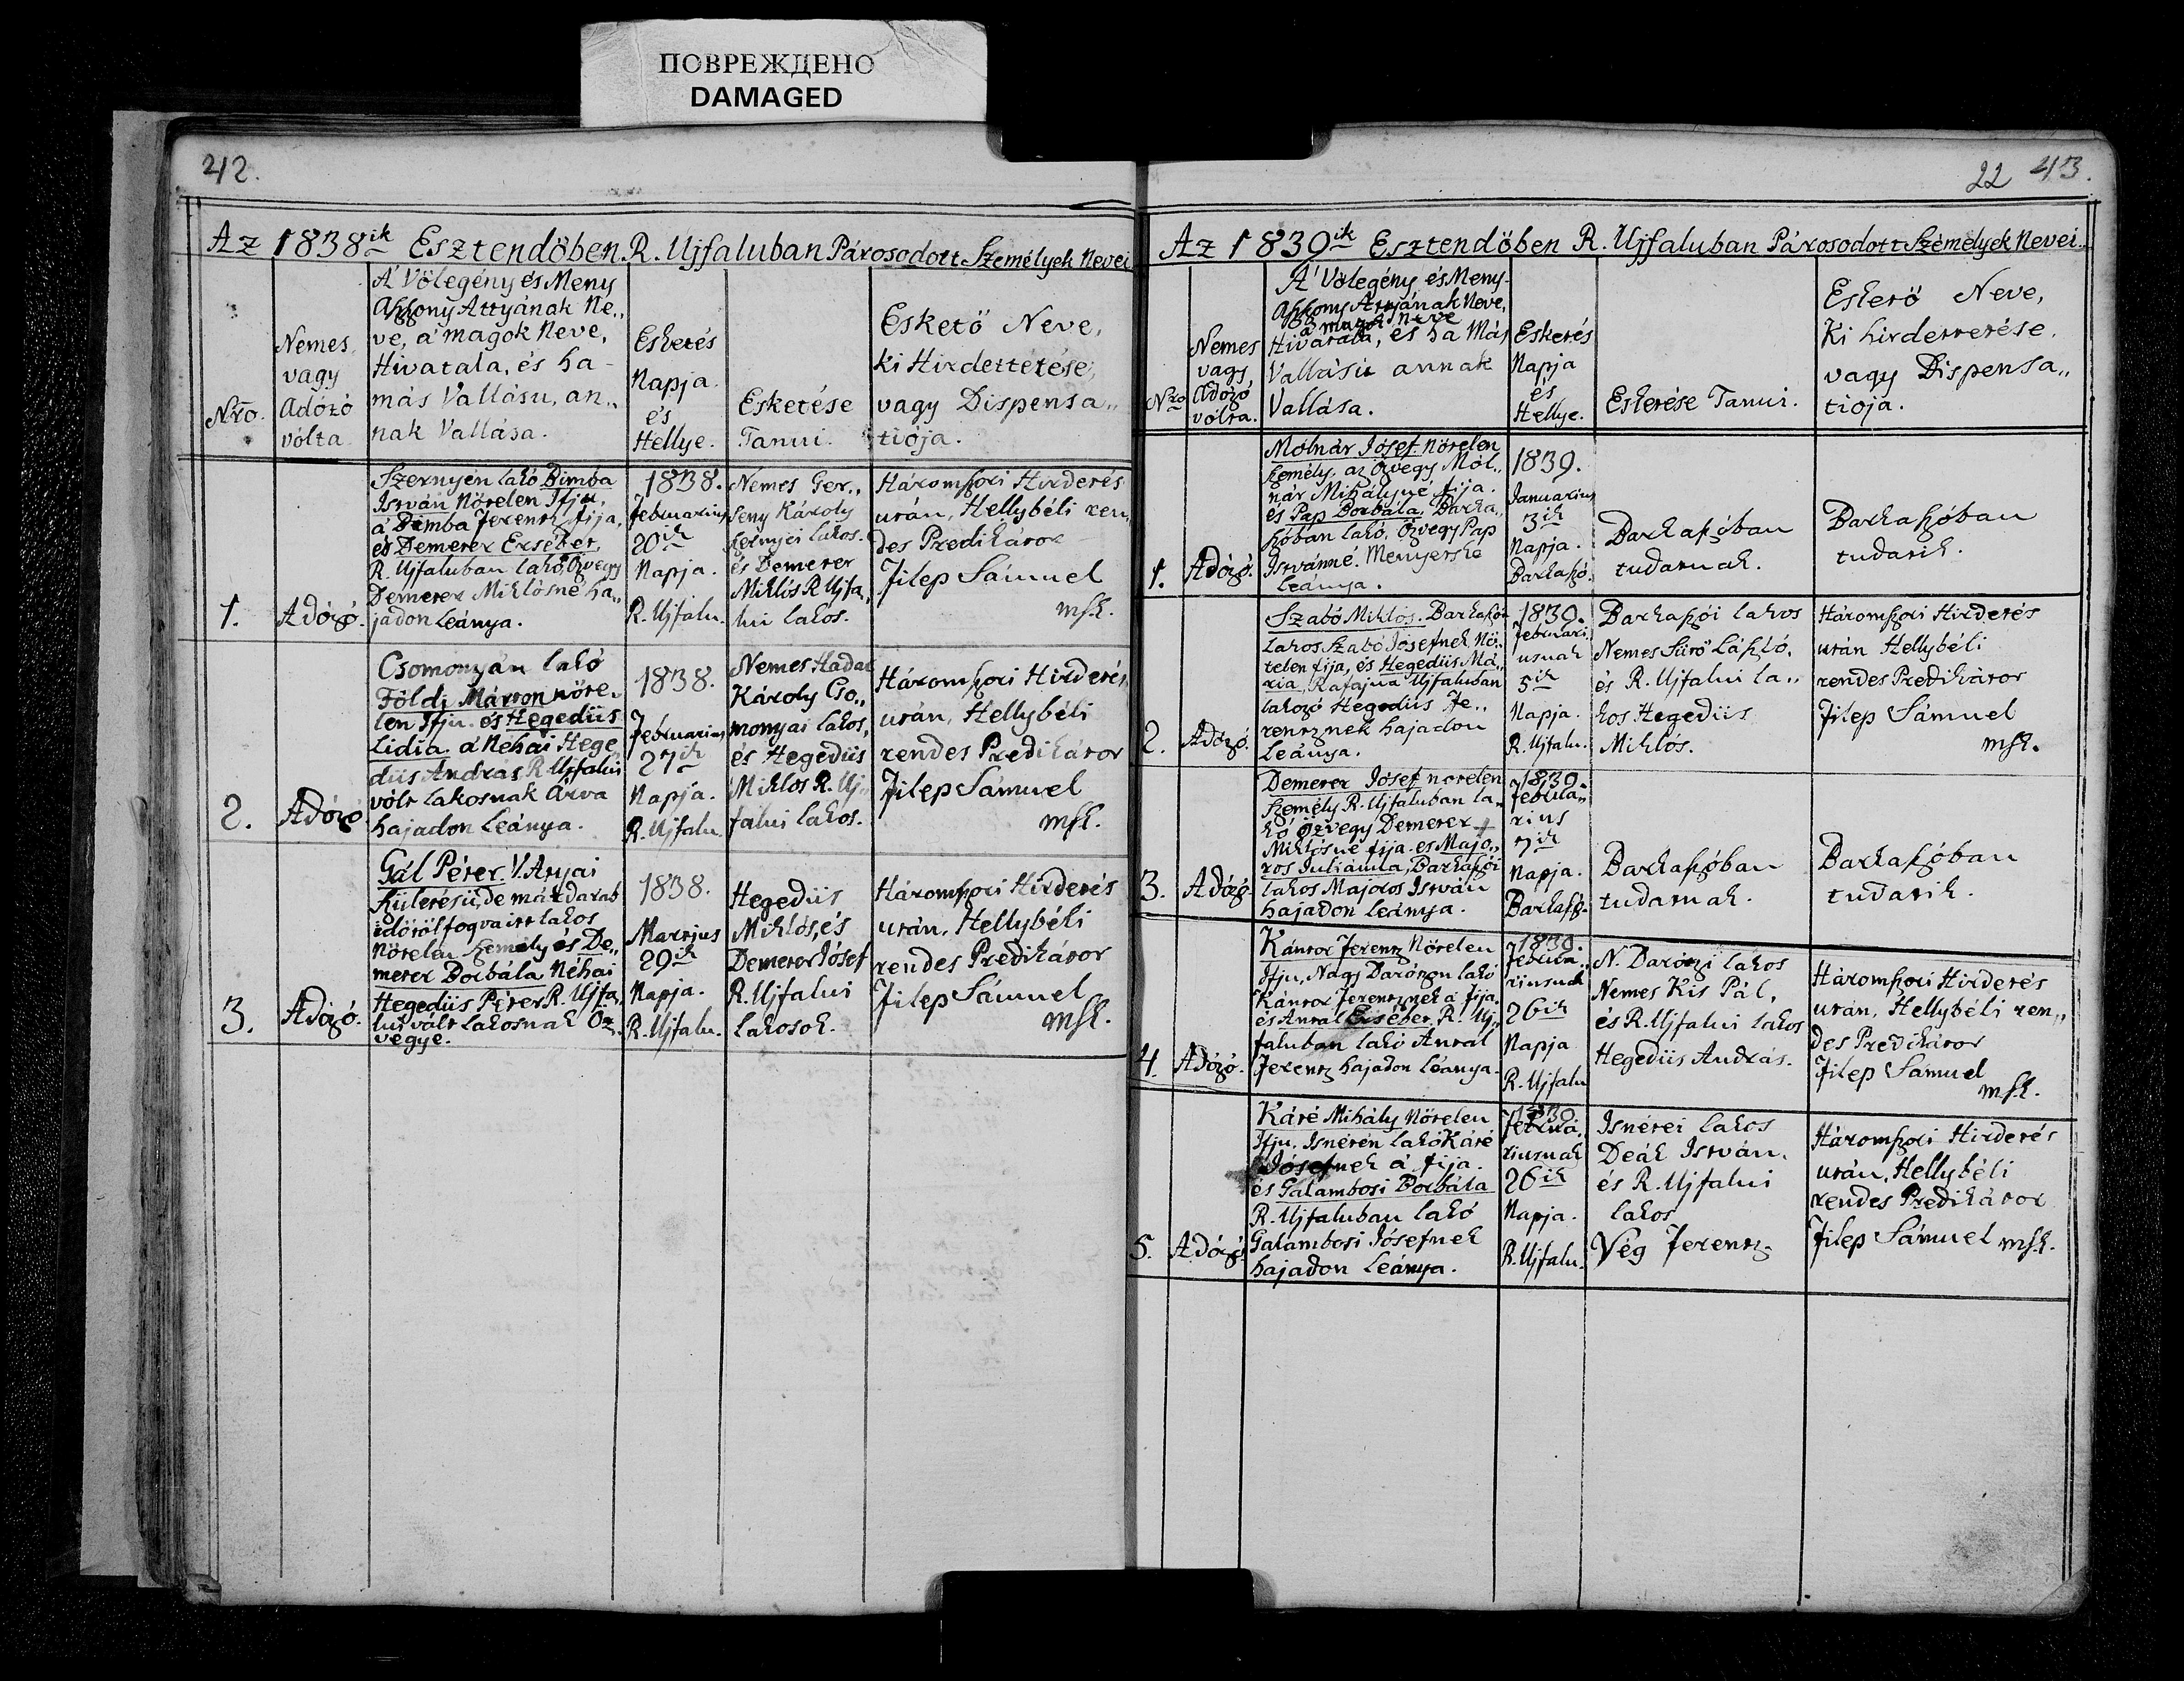 ПОВРЕЖДЕНО
DAMAGED
42.
Az 1838ik Esztendöben R. Ujfaluban Párosodott Személyek Nevei
Nro.
Nemes
vagy
Adózó
vólta
A' Völegény és Meny
Aſszony Attyának Ne„
ve, a' magok Neve,
Hivatala, és ha
más Vallásu, an„
nak Vallása.
Esketés
Napja
és
Hellye.
Esketése
Tanui.
Esketö Neve,
Ki Hirdettetése,
vagy Dispensa„
tiója.
1.
Adózó.
Szernyén lakó Bimba
István Nötelen Ifju,
á Bimba Ferentz fija,
és Demeter Ersébet,
R. Ujfaluban lakó Özvegy
Demeter Miklósné ha„
jadon Leánya.
1838.
Februarius
20ik
Napja.
R. Ujfalu.
Nemes Ger„
seny Károly
szernyei lakos.
és Demeter
Miklós R. Ujfa„
lui lakos.
Háromſzori Hirdetés
után, Hellybéli ren„
des Predikátor
Filep Sámuel
mſk.
2.
Adózó
Csomonyán lakó
Földi Márton nöte„
len Ifju. és Hegedüs
Lidia. á Néhai Hege
düs András R. Ujfalui
vólt lakosnak Árva
hajadon Leánya.
1838.
Februarius
27ik
Napja.
R. Ujfalu.
Nemes Hadar
Károly Cso„
monyai lakos,
és Hegedüs
Miklos R. Uj„
falui lakos.
Háromſzori Hirdetés
után, Hellybéli
rendes Predikátor
Filep Sámuel
mſk.
3.
Adózó.
Gál Péter. V. Atyai
születésü, de már darab
idötöl fogva itt lakos
Nötelen szemely és De„
meter Borbála Néhai
Hegedüs Péter R. Ujfa„
lui vólt lakosnak Öz„
vegye.
1838.
Martjus
29ik
Napja.
R. Ujfalu.
Hegedüs
Miklós, és
Demeter Jósef
R. Ujfalui
lakosok.
Háromſzori Hirdetés
után, Hellybéli
rendes Predikátor
Filep Sámuel
mſk.
22 43.
Az 1839ik Esztendöben R. Ujfaluban Párosodott Személyek Nevei.
Nro
Nemes
vagy
Adózó
vólta.
A' Völegény és Meny-
Aſszony Attyának Neve,
a' magok neve
Hivatala, és ha Más
Vallásu annak
Vallása.
Esketés
Napja
és
Hellye.
Esketése Tanui.
Esketö Neve,
Ki hirdettetése,
vagy Dispensa„
tioja.
1.
Adózó.
Molnár Jósef. Nötelen
személy. az Özvegy Mól„
nár Mihályné fija.
és Pap Borbála, Barka„
szóban lakó, Özvegy Pap
Istvánné. Menyetske
Leánya.
1839.
Januarius
3ik
Napja.
Barkaſzó.
Barkaſzóban
tudatnak.
Barkaſzóban
tudatik.
2.
Adózó.
Szabó Miklós. Barkaſzói
Lakos Szabó Jósefnek Nö„
telen fija, és Hegedüs Má„
ria, Rafajna Ujfaluban
lakozó Hegedüs Fe„
rentznek hajadon
Leánya.
1839.
Februari
usnak
5ik
Napja.
R. Ujfalu.
Barkaſzói lakos
Nemes Sürö Láſzló,
és R. Ujfalui la„
kos Hegedüs
Miklós.
Háromſzori Hirdetés
után Hellybéli
rendes Predikátor
Filep Sámuel
mſk.
3.
Adózó
Demeter Jósef nötelen
Személy R. Ujfaluban la„
kó Özvegy Demeter
Miklósné fija. és Majo„
ros Juliánna, Barkaſzói
lakos Majoros István
hajadon leánya.
1839.
Februa„
rius
7ik
Napja.
Barkaſz.
Barkaſzóban
tudatnak.
Barkaſzóban
tudatik.
4.
Adózó.
Kántor Ferentz Nötelen
Ifju, Nagy Darótzon lakó
Kántor Ferentznek á fija.
és Antal Ersébet R. Uj„
faluban lakó Antal
Ferentz hajadon Leánya.
1839.
Februa„
riusnak
26ik
Napja
R. Ujfalu
N. Darótzi lakos
Nemes Kis Pál,
és R. Ujfalui lakos
Hegedüs András.
Háromſzori Hirdetés
után, Hellybéli ren„
des Predikátor
Filep Sámuel
mſk.
5.
Adózó
Káré Mihály Nötelen
Ifju. Isnétén lakó Káré
Jósefnek á fija.
és Galambosi Borbála
R. Ujfaluban lakó
Galambosi Jósefnek
hajadon Leánya.
1839.
Februa„
riusnak
26ik
Napja.
R. Ujfalu.
Isnétei lakos
Deák István.
és R. Ujfalui
lakos
Vég Ferentz
Háromſzori Hirdetés
után, Hellybéli
rendes Predikátor
Filep Sámuel mſk.